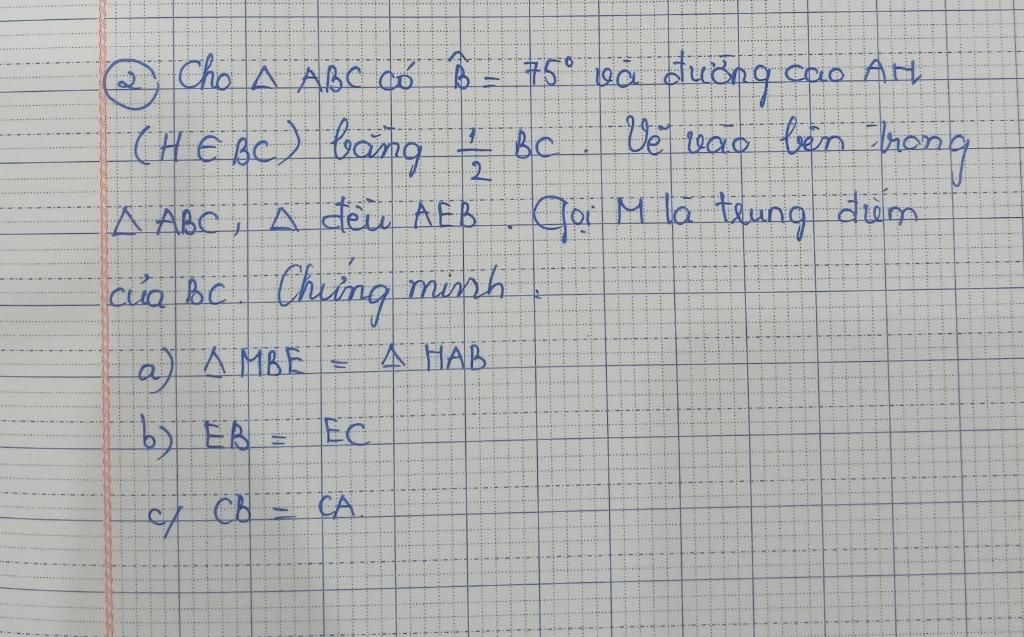 ② Cho Δ ABC có B̂ = 75° và đường cao AH
(H ∈ BC) bằng 1/2 BC. Vẽ vào bên trong
Δ ABC, Δ đều AEB. Gọi M là trung điểm
của BC. Chứng minh.
a) Δ MBE = Δ HAB
b) EB = EC
c/ CB = CA